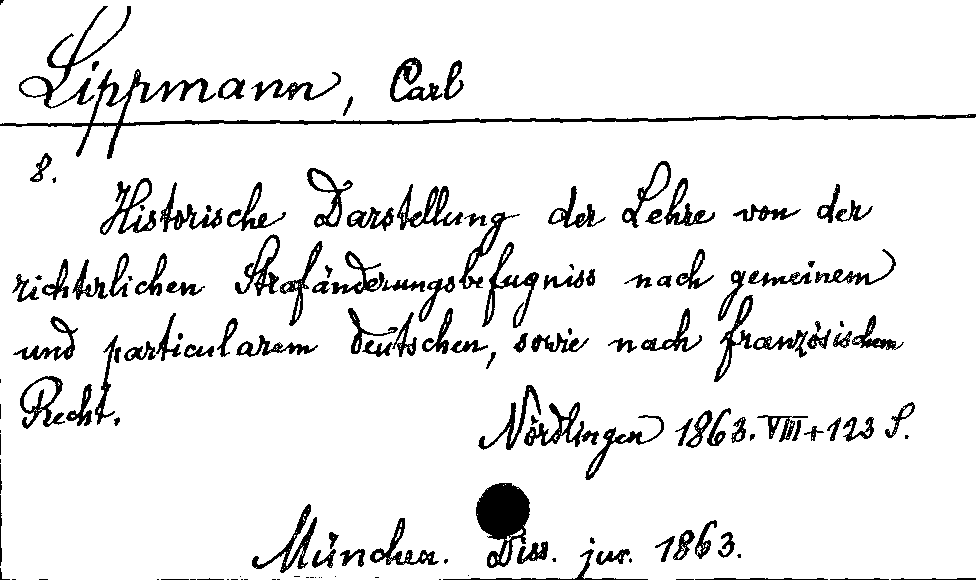 Lippmann, Carl
8.
Historische Darstellung der Lehre von der
richterlichen Strafänderungsbefugniss nach gemeinem
und particularem deutschen, sowie nach französischem
Recht.
Nördlingen 1863. VIII + 123 S.
München. Diss. jur. 1863.